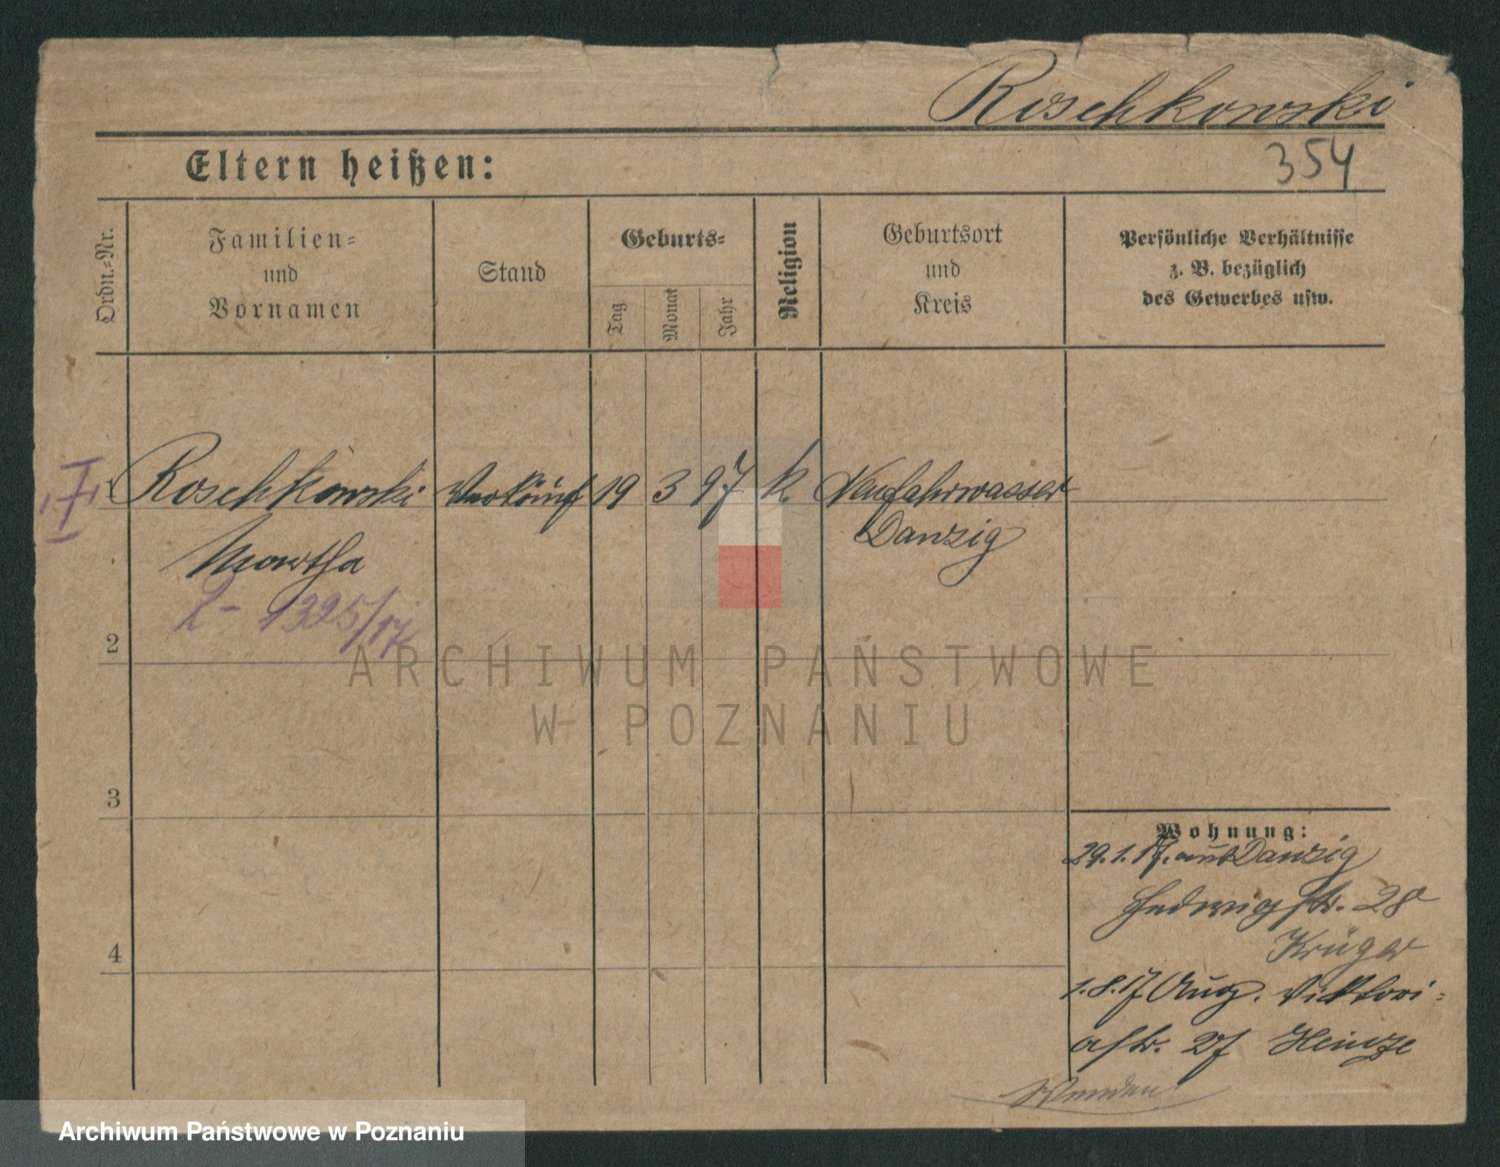 Roschkowski
Eltern heißen:
354
Ordn.-Nr.
Familien-
und
Vornamen
Stand
Geburts-
Tag
Monat
Jahr
Religion
Geburtsort
und
Kreis
Persönliche Verhältnisse
z. B. bezüglich
des Gewerbes usw.
I
1 Roschkowski Verkäuf 19 3 97 k. Neufahrwasser
Martha Danzig
1325/17
2
3
4
Wohnung:
29.1.17. aus Danzig
Hedwigstr. 28
Krüger
1.8.17 Aug. Viktori-
astr. 27 Heinze
Wenden
ARCHIWUM PAŃSTWOWE
W POZNANIU
Archiwum Państwowe w Poznaniu